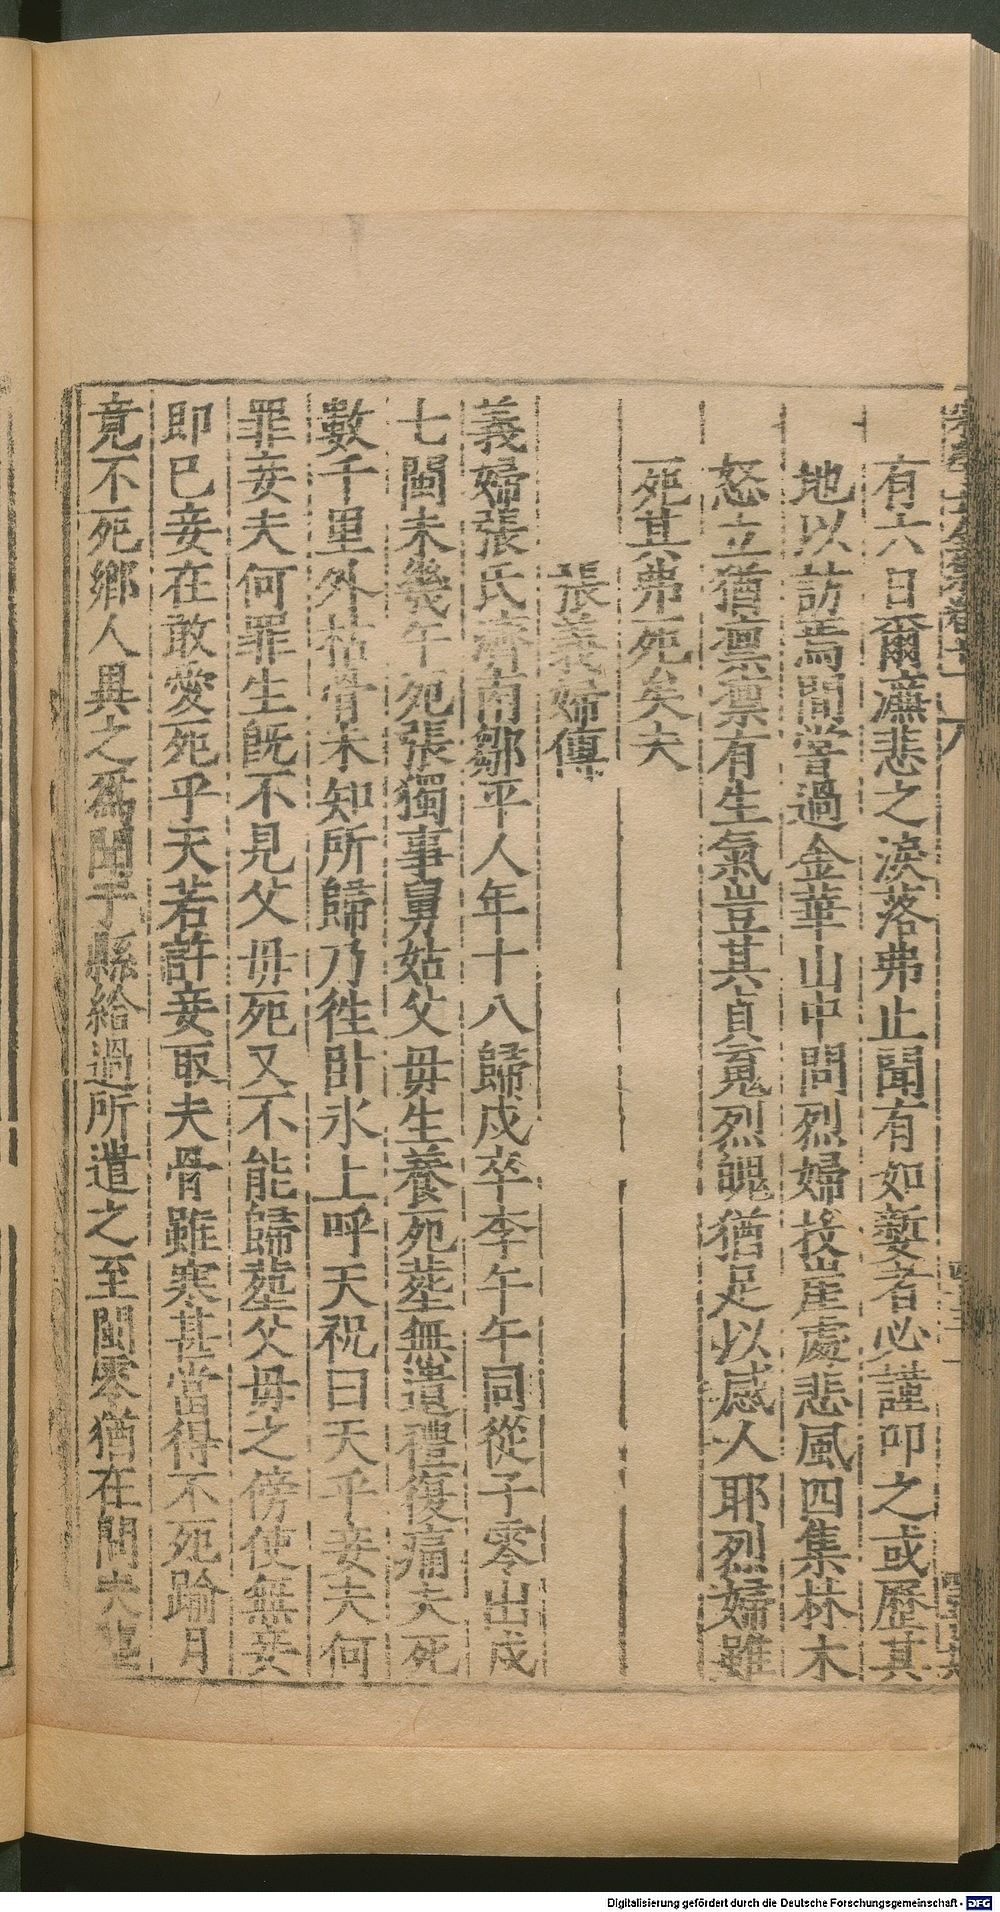 有六日爾灑悲之淚落弗止聞有如嫠者必謹叩之或歷其
地以訪焉間嘗過金華山中問烈婦投崖處悲風四集林木
怒立猶凛凛有生氣豈其貞䰟烈魄猶足以感人耶烈婦雖
死其弗死矣夫
張義婦傳
義婦張氏濟南鄒平人年十八歸戍卒李午午同從子零出戍
七閩未幾午死張獨事舅姑父毋生養死塟無遺禮復痛夫死
數千里外枯骨未知所歸乃徃卧氷上呼天祝曰天乎妾夫何
罪妾夫何罪生旣不見父毋死又不能歸塟父毋之傍使無妾
即巳妾在敢愛死乎天若許妾取夫骨雖寒甚當得不死踰月
竟不死鄉人異之爲聞于縣給過所遣之至閩零猶在問夫
Digitalisierung gefördert durch die Deutsche Forschungsgemeinschaft - DFG